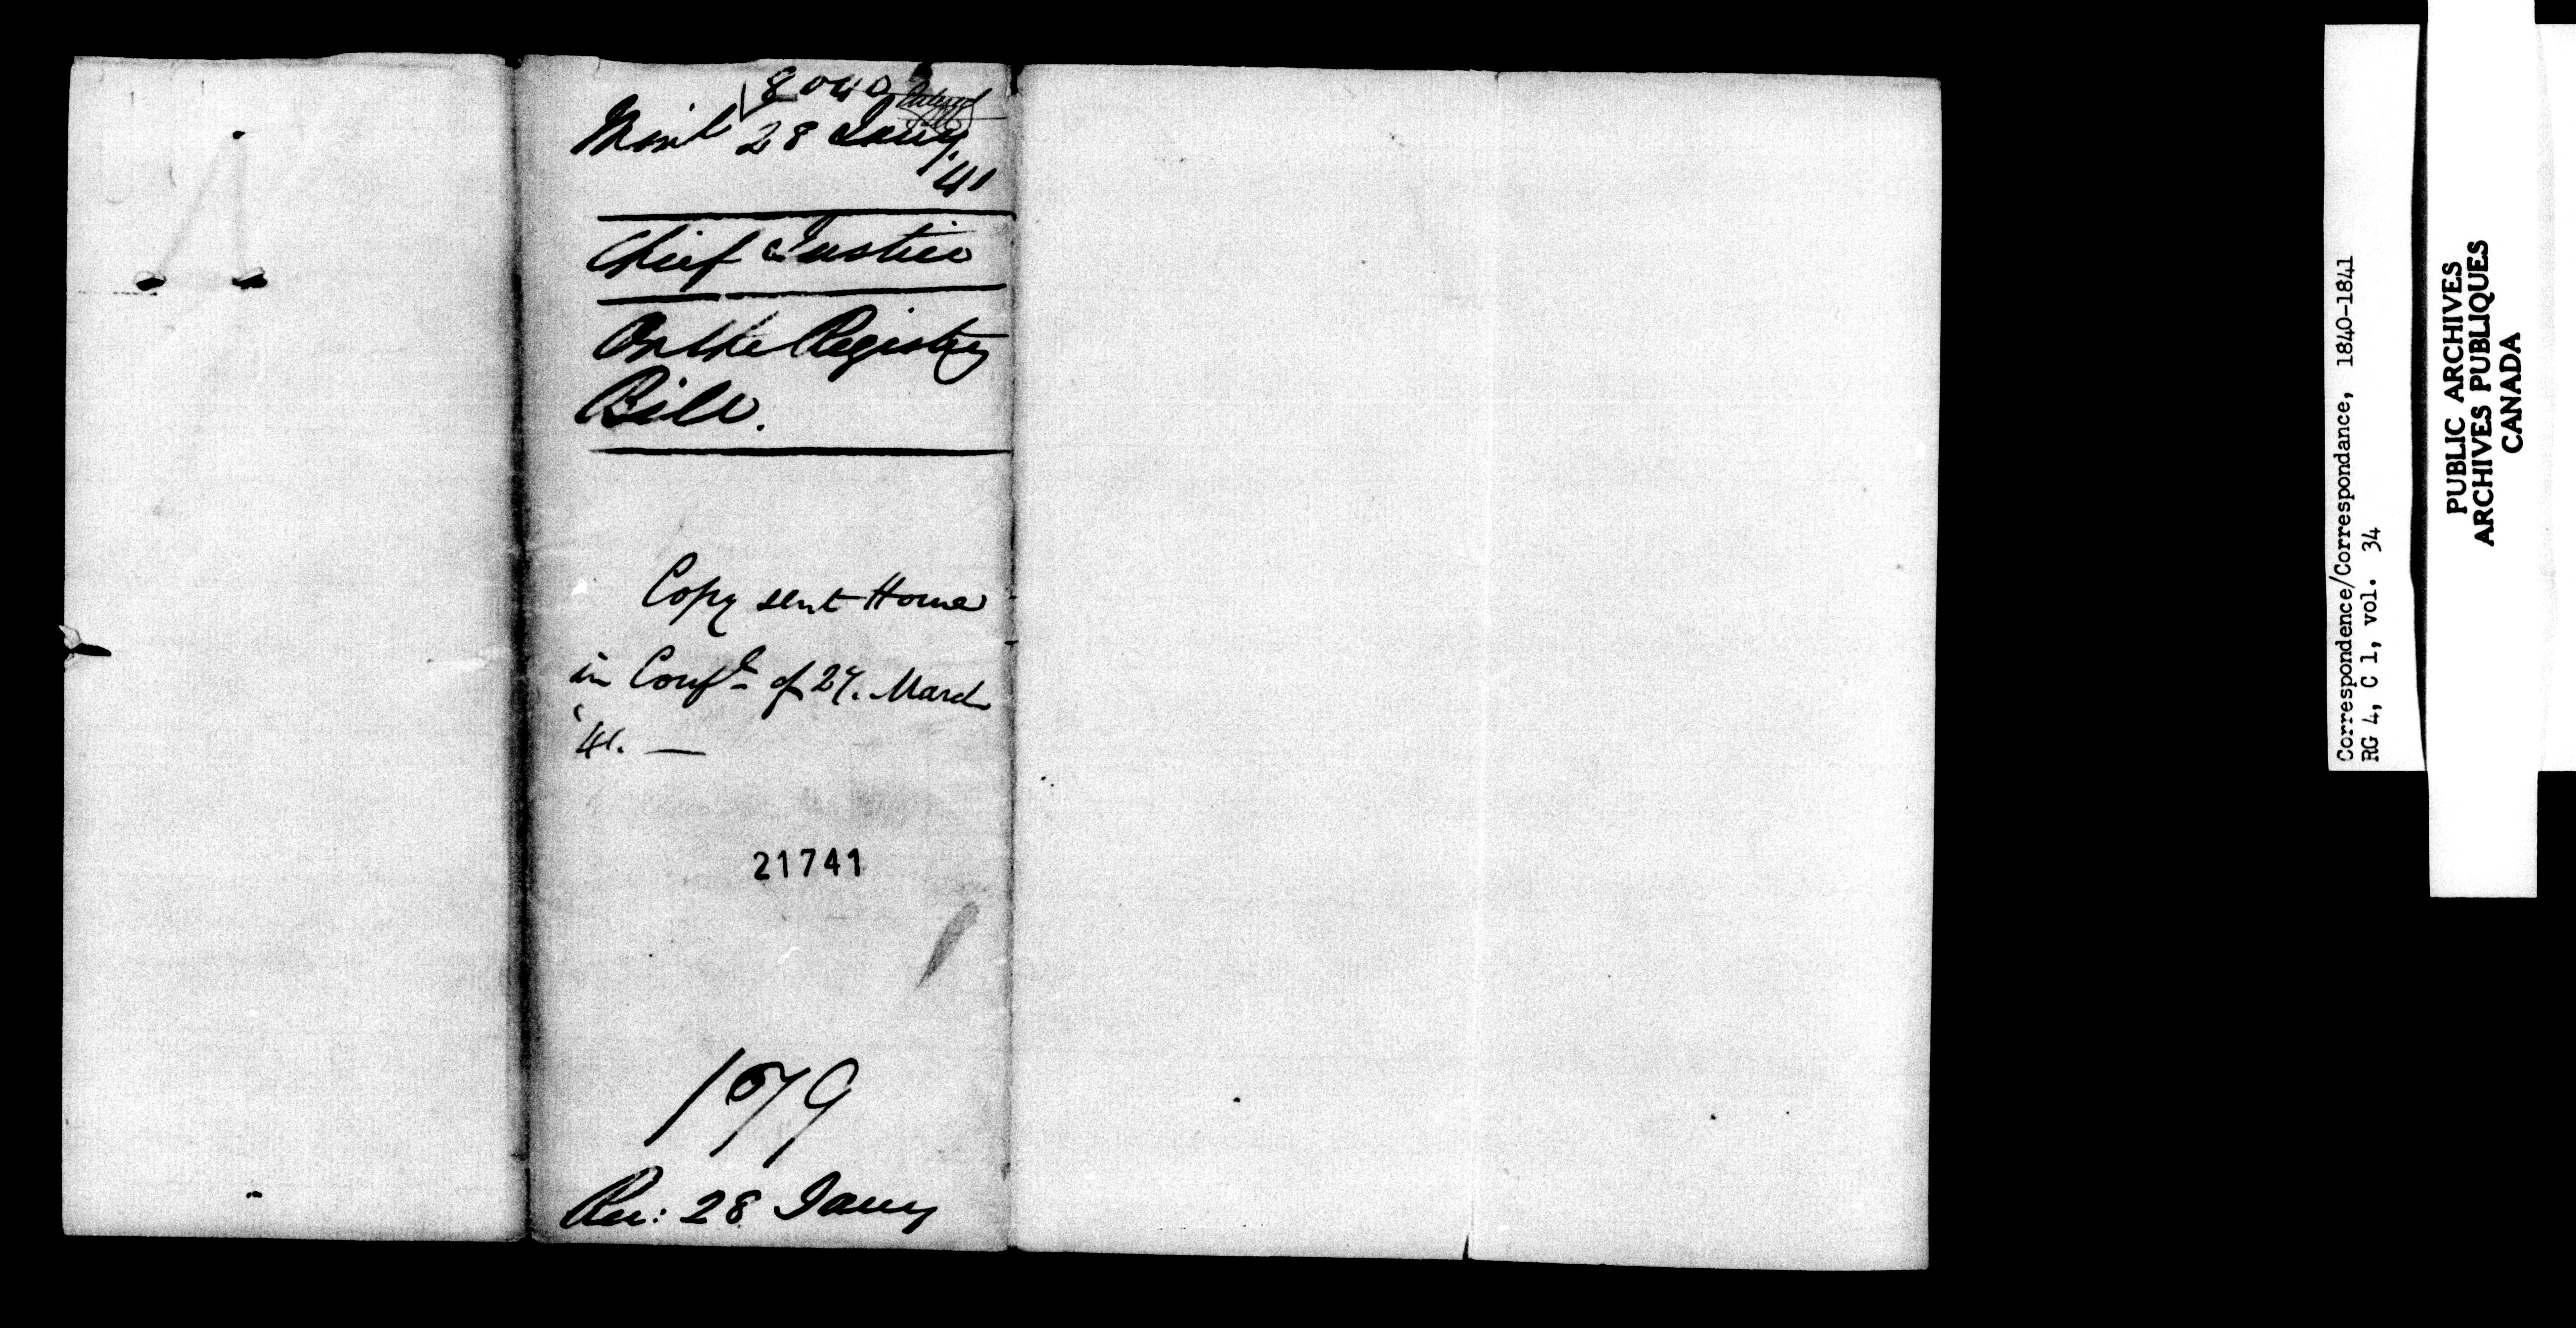 8040 Entered
Mont<sup>l</sup> 28 Jany
'41
Chief Justice
On the Registry
Bill.
Copy sent Home
in Conf<sup>l</sup> of 27. March
'41. —
21741
179
Rec: 28 Jany
Correspondence/Correspondance, 1840-1841
RG 4, C 1, vol. 34
PUBLIC ARCHIVES
ARCHIVES PUBLIQUES
CANADA